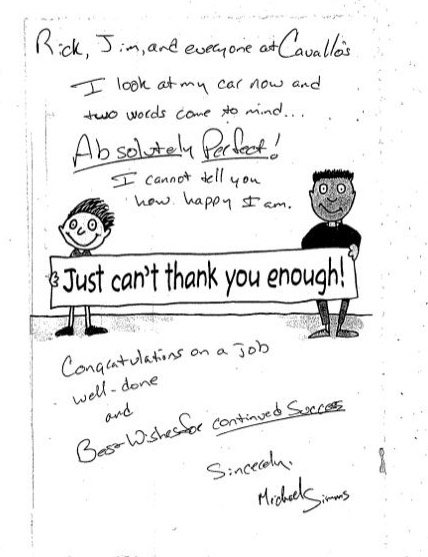 Rick, Jim, and everyone at Cavallo's
I look at my car now and
two words come to mind...
Absolutely Perfect!
I cannot tell you
how happy I am.
Just can't thank you enough!
Congratulations on a job
well-done
and
Best Wishes for continued Success
Sincerely,
Michael Simms